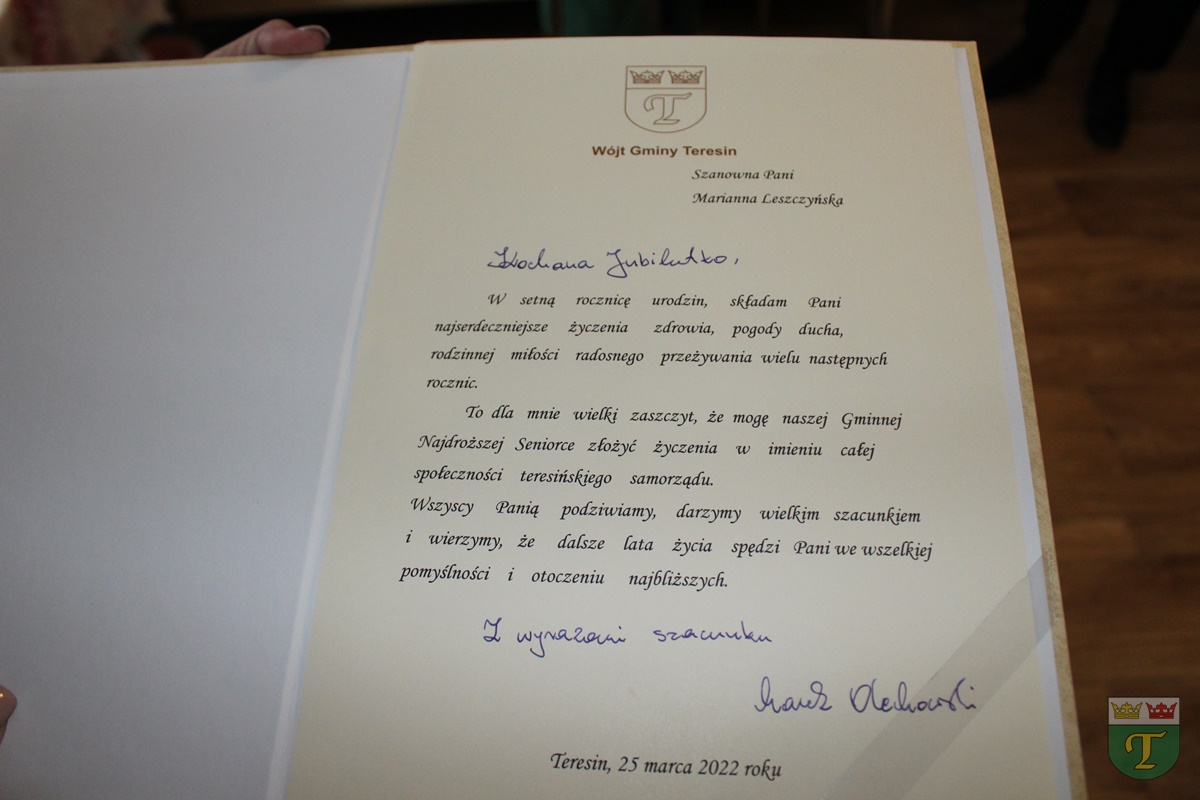 T
Wójt Gminy Teresin
Szanowna Pani
Marianna Leszczyńska
Kochana Jubilatko,
W setną rocznicę urodzin, składam Pani
najserdeczniejsze życzenia zdrowia, pogody ducha,
rodzinnej miłości radosnego przeżywania wielu następnych
rocznic.
To dla mnie wielki zaszczyt, że mogę naszej Gminnej
Najdroższej Seniorce złożyć życzenia w imieniu całej
społeczności teresińskiego samorządu.
Wszyscy Panią podziwiamy, darzymy wielkim szacunkiem
i wierzymy, że dalsze lata życia spędzi Pani we wszelkiej
pomyślności i otoczeniu najbliższych.
Z wyrazami szacunku
Marek Olechowski
Teresin, 25 marca 2022 roku
T